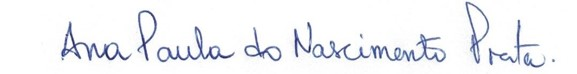 Ana Paula do Nascimento Prata.